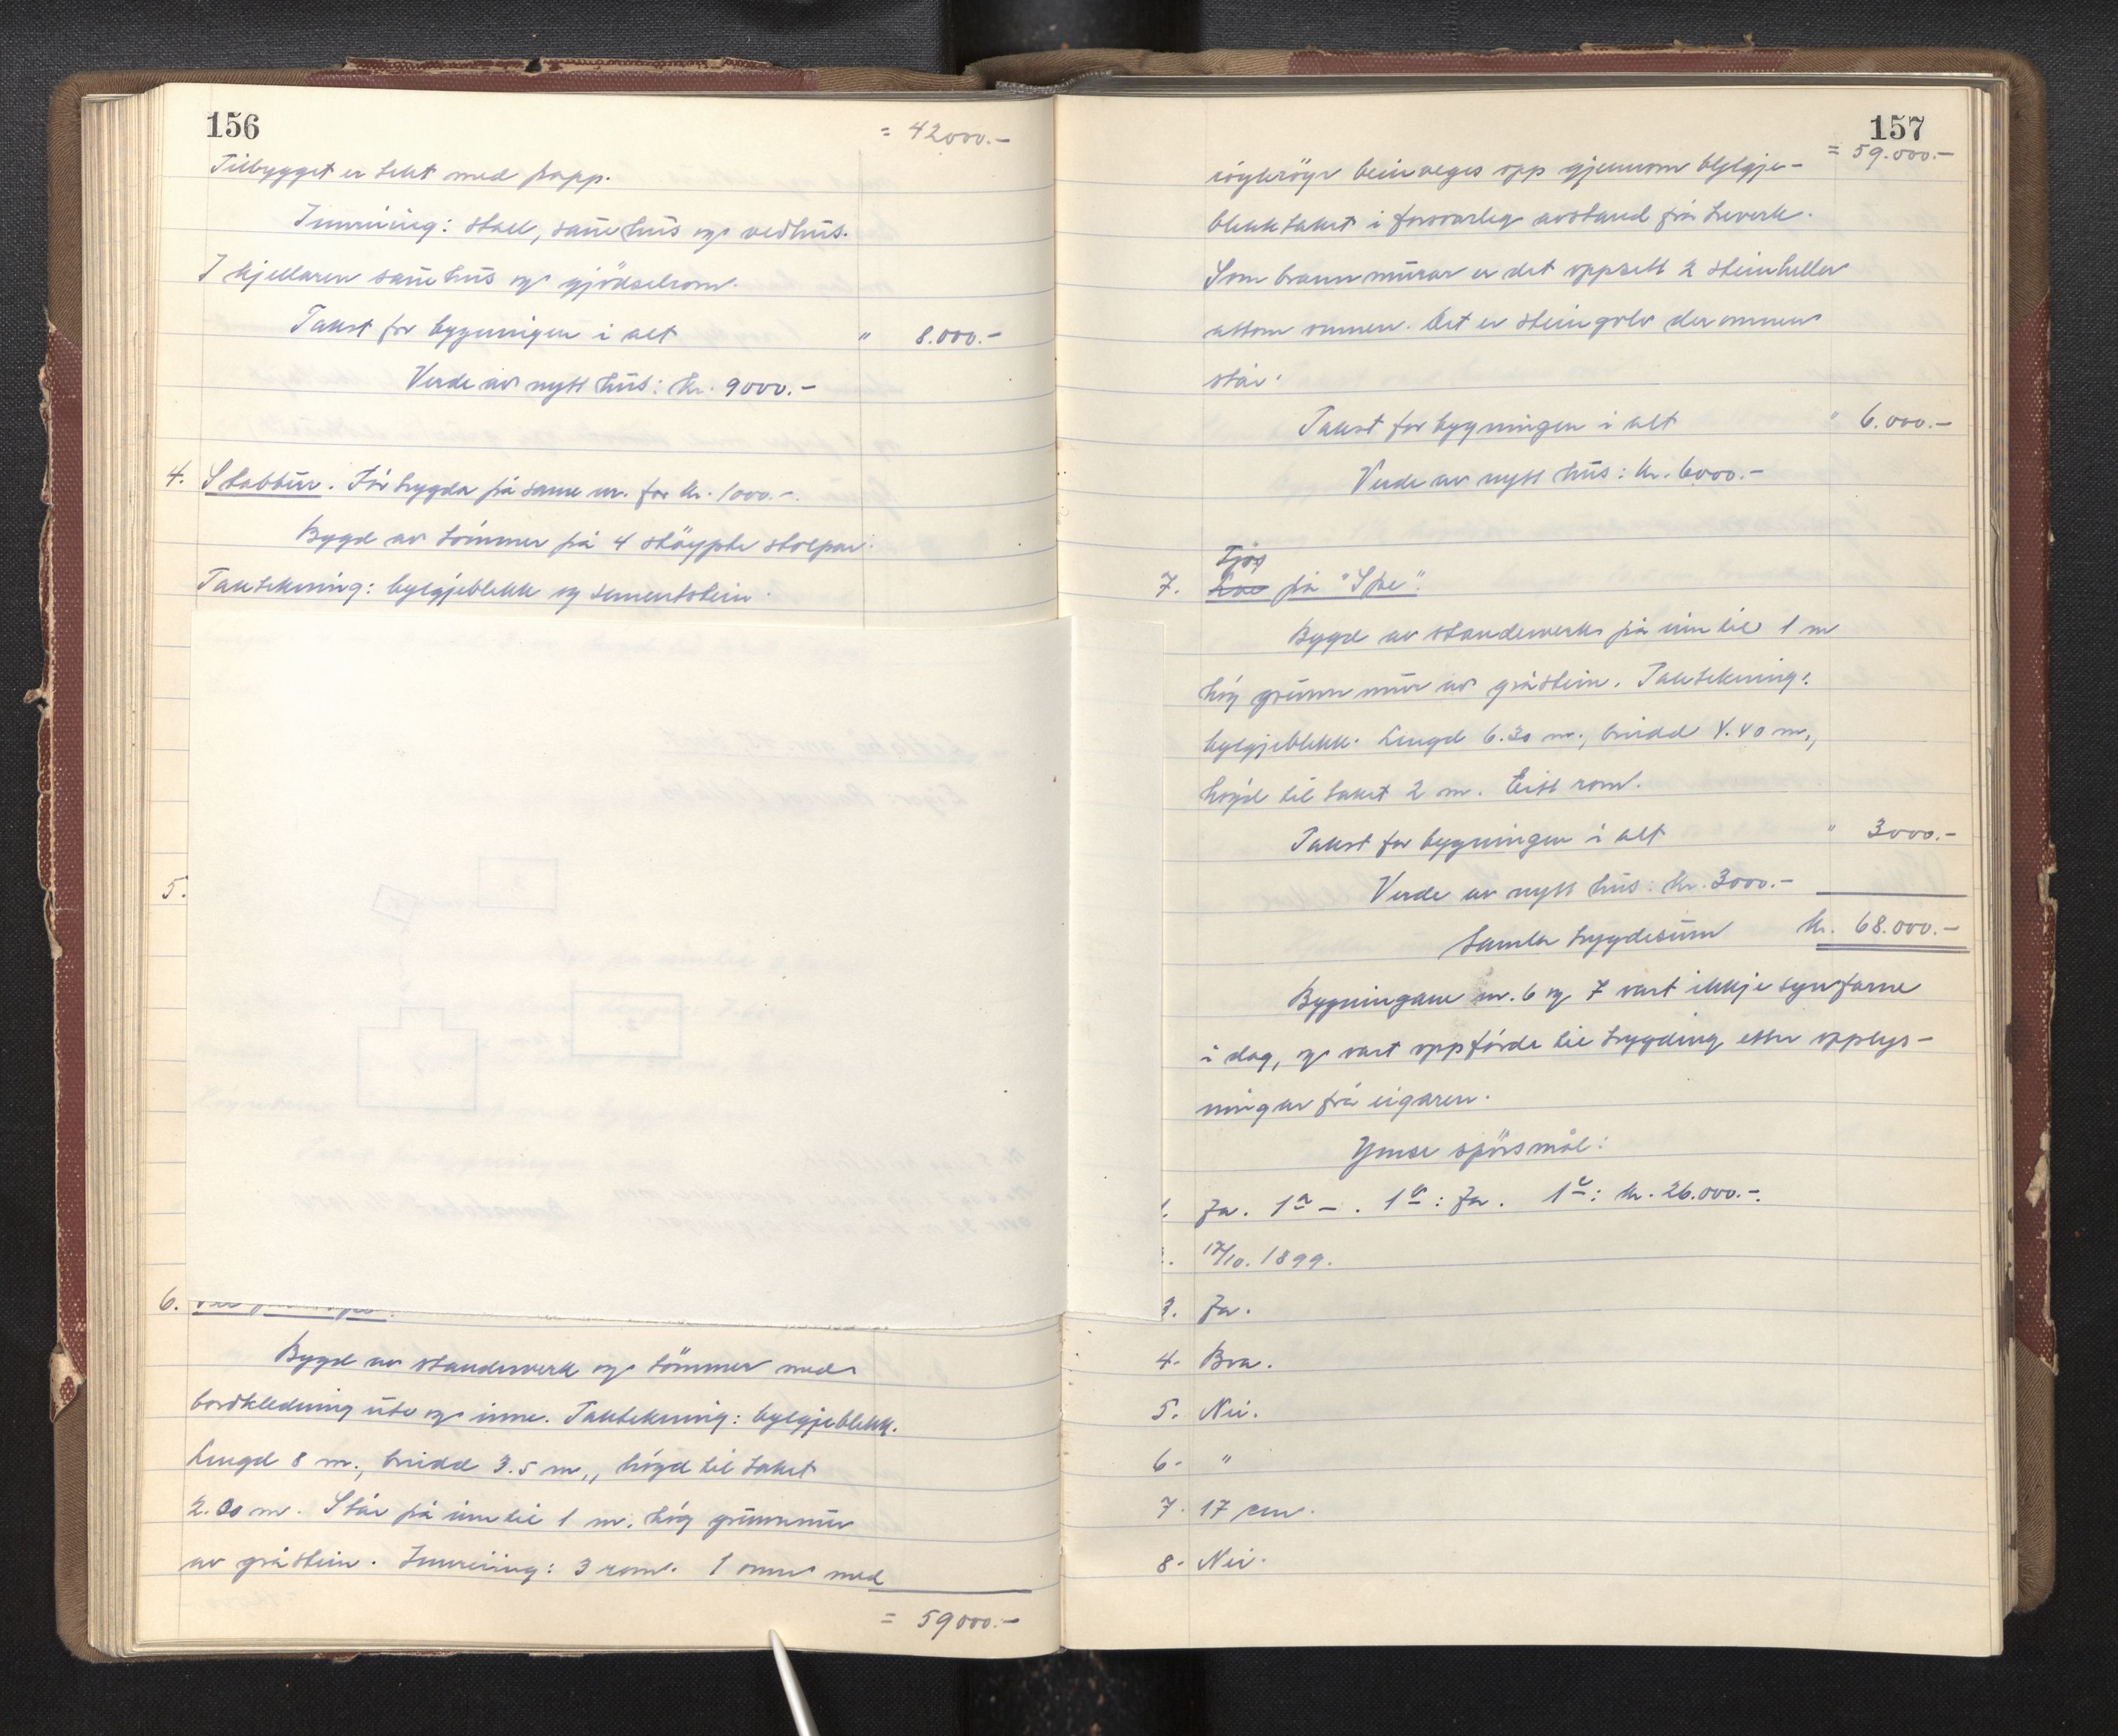 156
= 42000.-
Tilbygget er tekt med papp.
Innreiing: stall, sauehus og vedhus.
I kjellaren sauehus og gjödselrom.
Takst for bygningen i alt " 8.000.-
Verde av nytt hus: kr. 9000.-
4. Stabbur. Før trygda på same nr. for kr. 1000.-.
Bygd av tömmer på 4 stöypte stolpar.
Taktekning: bylgjeblekk og sementstein.
5.
6.
Bygd av standerverk og tömmer med
bordkledning ute og inne. Taktekning: bylgjeblekk.
Lengd 8 m., breidd 3.5 m., högd til taket
2.00 m. Står på inntil 1 m. høg grunnmur
av gråstein. Innreiing: 3 rom. 1 omn med
= 59000.-
157
= 59.000.-
röykröyr beinveges opp gjennom bylgje-
blekktaket i forsvarleg avstand frå treverk.
Som brannmurar er det oppsett 2 steinheller
attom omnen. Det er steingolv der omnen
står.
Takst for bygningen i alt " 6.000.-
Verde av nytt hus: kr. 6000.-
Fjös
7. Löe på "Spe".
Bygd av standerverk på inntil 1 m
høg grunnmur av gråstein. Taktekning:
bylgjeblekk. Lengd 6.30 m., breidd 4.40 m.,
høgd til taket 2 m. Eitt rom.
Takst for bygningen i alt " 3000.-
Verde av nytt hus: kr. 3000.-
Samla trygdesum kr. 68.000.-
Bygningane nr. 6 og 7 vart ikkje synfarne
i dag, og vart oppförde til trygding etter opplys-
ningar frå eigaren.
Ymse spörsmål:
Ja. 1a - . 1b: Ja. 1c: kr. 26.000.-.
17/10. 1899.
3. Ja.
4. Bra.
5. Nei.
6. "
7. 17 cm.
8. Nei.